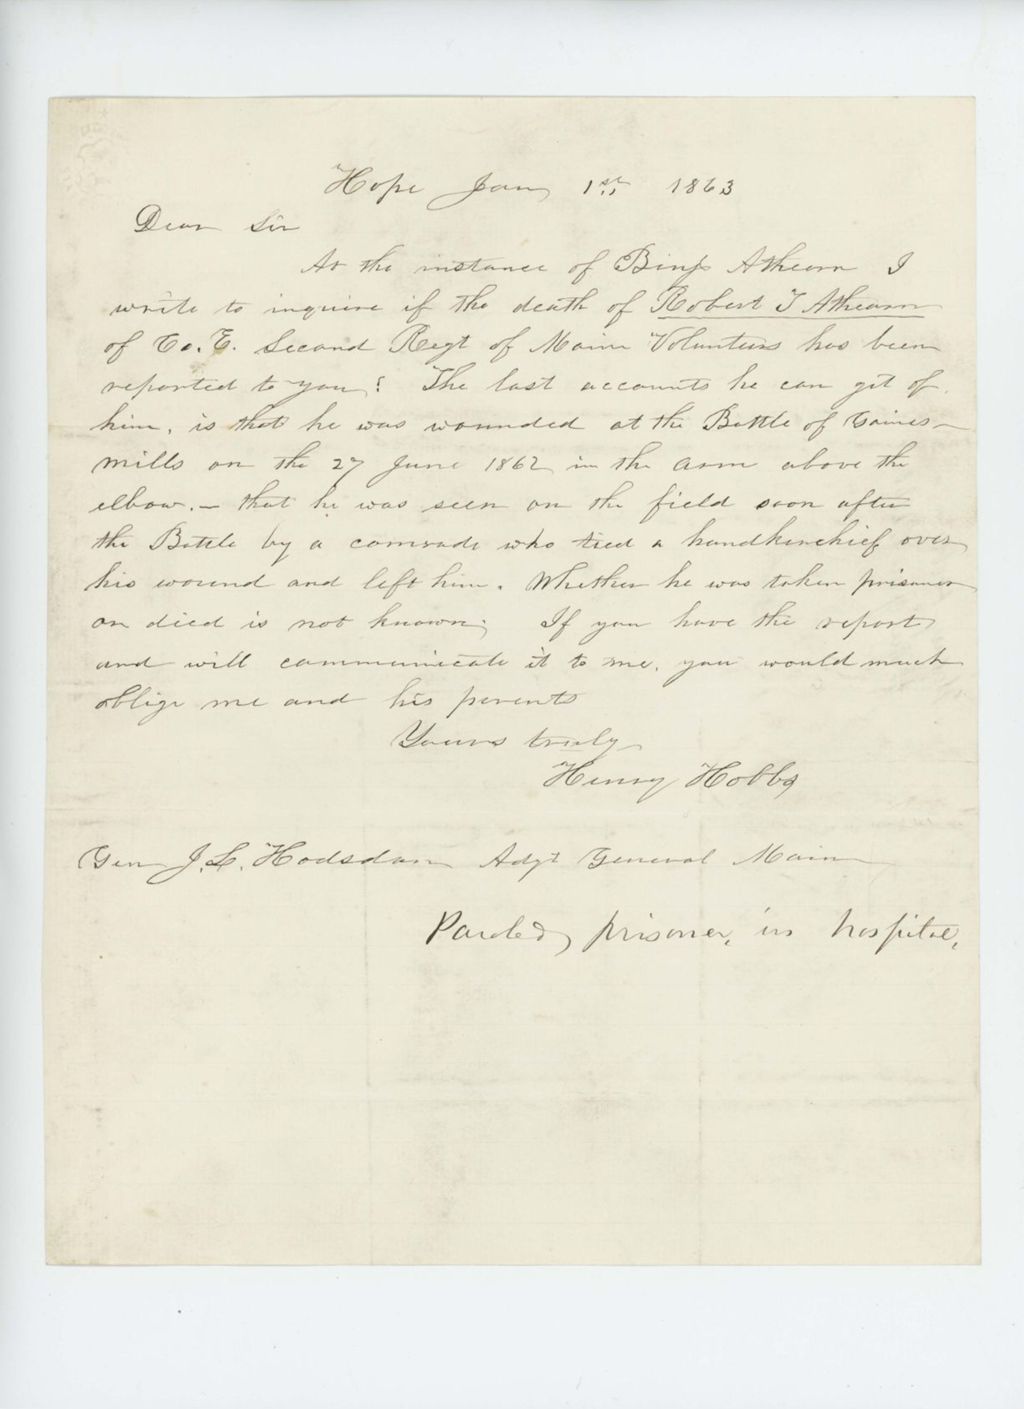 Hope Jany 1st, 1863
Dear Sir
At the instance of Benj. Athearn I
write to inquire if the death of Robert T Athearn
of Co. E. Second Regt of Maine Volunteers has been
reported to you? The last accounts he can git of
him, is that he was wounded at the Battle of Gaines-
mills on the 27 June 1862 in the arm above the
elbow. – that he was seen on the field soon after
the Battle by a comrade who tied a handkerchief over
his wound and left him. Whether he was taken prisoner
or died is not known. If you have the report
and will communicate it to me, you would much
oblige me and his parents
Yours truly
Henry Hobbs
Gen J. L. Hodsdon Adgt General Maine
Paroled, prisoner, in hospital,